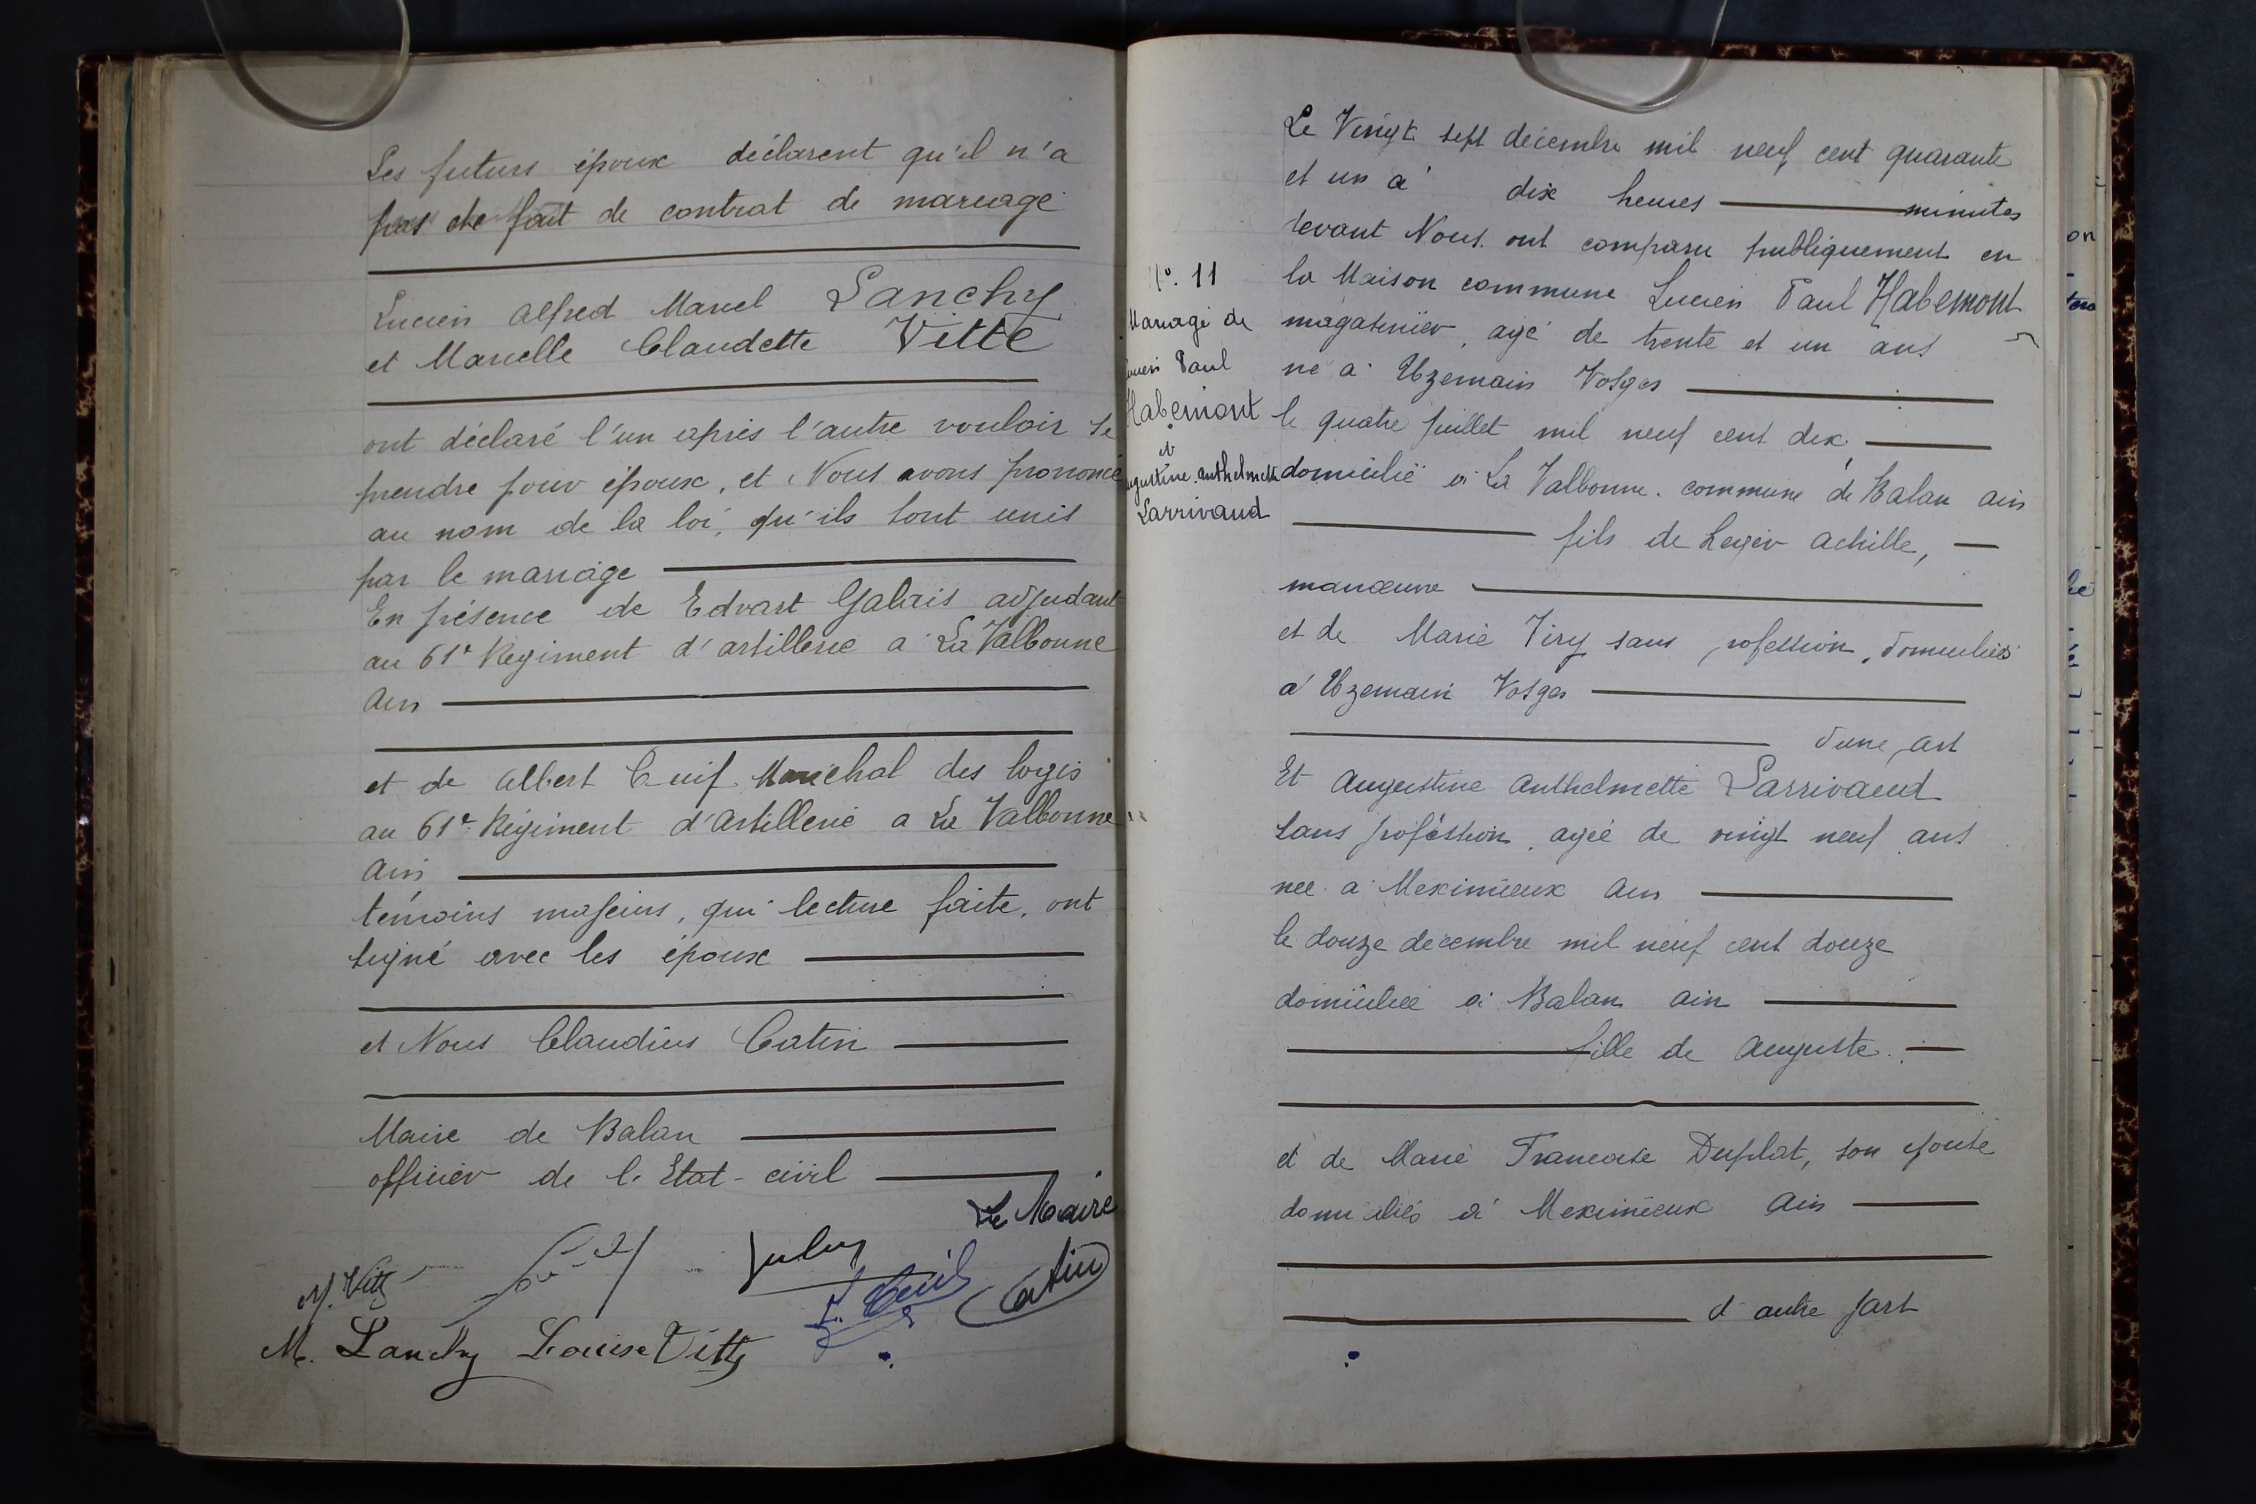 Les futurs époux déclarent qu'il n'a
pas été fait de contrat de mariage
Lucien Alfred Marcel Lanchy
et Marcelle Claudette Vitte
ont déclaré l'un après l'autre vouloir se
prendre pour époux, et Nous avons prononcé
au nom de la loi, qu'ils sont unis
par le mariage
En présence de Edvart Galais adjudant
au 61e Régiment d'artillerie a La Valbonne
Ain
et de Albert Cuif Marechal des logis
au 61e Régiment d'Artillerie a La Valbonne
Ain
témoins majeurs, qui lecture faite, ont
signé avec les époux
et Nous Claudius Catin
Maire de Balan
officier de l'Etat-civil
Le Maire
M. Vitte
Catin
M. Lanchy Louise Vitte
No. 11
Mariage de
Lucien Paul
Habemont
et
Augustine Anthelmette
Larrivaud
Le Vingt sept décembre mil neuf cent quarante
et un à dix heures minutes
devant Nous ont comparu publiquement en
la Maison commune Lucien Paul Habemont
magasinier, agé de trente et un ans
né à Uzemain Vosges
le quatre juillet mil neuf cent dix,
domicilié à La Valbonne commune de Balan Ain
fils de Leger Achille,
manœuvre
et de Marie Viry sans profession, domiciliés
à Uzemain Vosges
d'une part
Et Augustine Anthelmette Larrivaud
sans profession, agée de vingt neuf ans
née à Meximieux Ain
le douze décembre mil neuf cent douze
domiciliée à Balan Ain
fille de Auguste
et de Marie Francoise Duplat, son épouse
domiciliés à Meximieux Ain
d'autre part